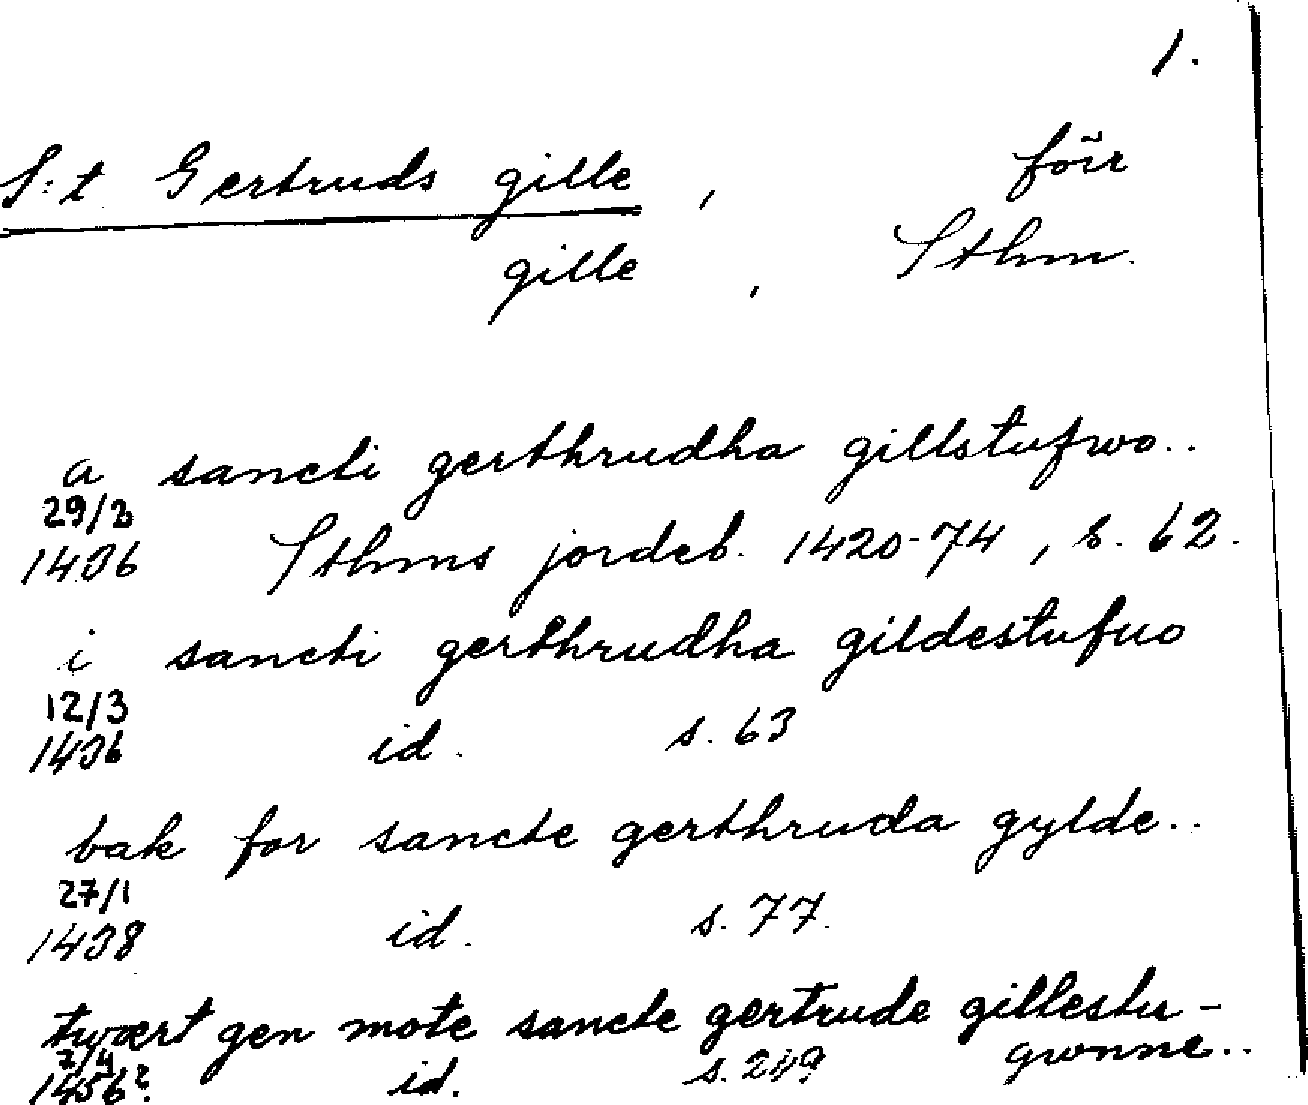 1.
S:t Gertruds gille, förr
gille, Sthm.
a sancti gerthrudha gillstufwo..
29/3
1436 Sthms jordeb. 1420-74, s. 62.
i sancti gerthrudha gildestufuo
12/3
1436 id. s. 63
bak for sancte gerthruda gylde..
27/1
1438 id. s. 77.
twært gen mote sancte gertrude gillestu-
7/4 gwonne..
1456? id. s. 249